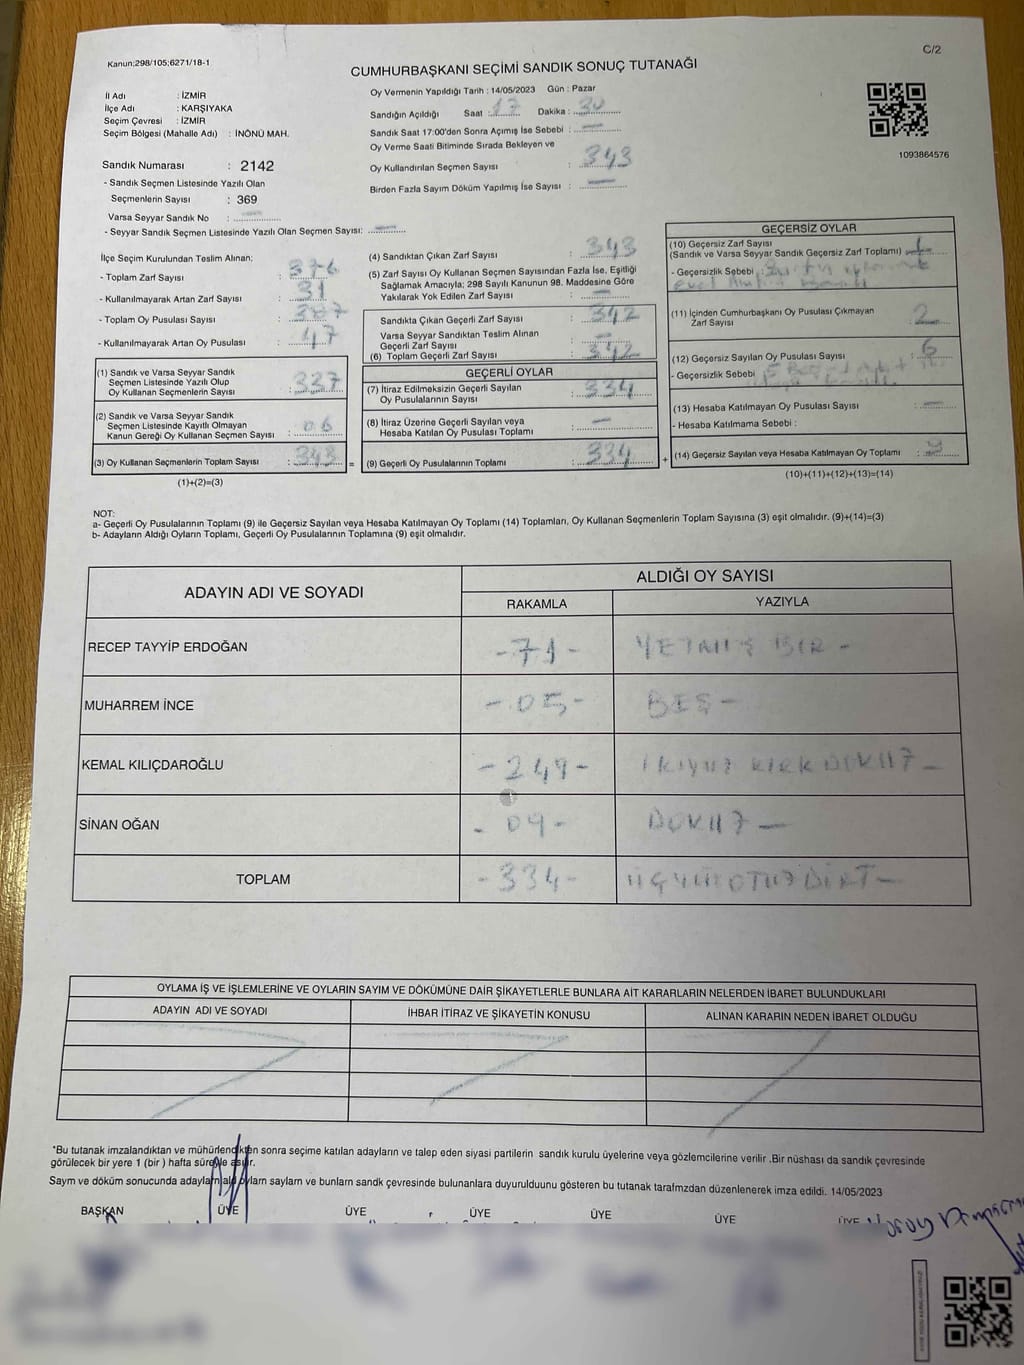 Kanun:298/105;6271/18-1
C/2
CUMHURBAŞKANI SEÇİMİ SANDIK SONUÇ TUTANAĞI
İl Adı : İZMİR
İlçe Adı : KARŞIYAKA
Seçim Çevresi : İZMİR
Seçim Bölgesi (Mahalle Adı) : İNÖNÜ MAH.
Sandık Numarası : 2142
- Sandık Seçmen Listesinde Yazılı Olan
Seçmenlerin Sayısı : 369
Varsa Seyyar Sandık No :
- Seyyar Sandık Seçmen Listesinde Yazılı Olan Seçmen Sayısı:
Oy Vermenin Yapıldığı Tarih : 14/05/2023 Gün : Pazar
Sandığın Açıldığı Saat 17 Dakika : 30
Sandık Saat 17:00'den Sonra Açımış İse Sebebi : —
Oy Verme Saati Bitiminde Sırada Bekleyen ve
Oy Kullandırılan Seçmen Sayısı : 343
Birden Fazla Sayım Döküm Yapılmış İse Sayısı : —
1093864576
İlçe Seçim Kurulundan Teslim Alınan:
- Toplam Zarf Sayısı : 376
- Kullanılmayarak Artan Zarf Sayısı : 31
- Toplam Oy Pusulası Sayısı :
- Kullanılmayarak Artan Oy Pusulası : 47
(1) Sandık ve Varsa Seyyar Sandık
Seçmen Listesinde Yazılı Olup
Oy Kullanan Seçmenlerin Sayısı : 337
(2) Sandık ve Varsa Seyyar Sandık
Seçmen Listesinde Kayıtlı Olmayan
Kanun Gereği Oy Kullanan Seçmen Sayısı : 06
(3) Oy Kullanan Seçmenlerin Toplam Sayısı : 343 =
(1)+(2)=(3)
(4) Sandıktan Çıkan Zarf Sayısı : 343
(5) Zarf Sayısı Oy Kullanan Seçmen Sayısından Fazla İse, Eşitliği
Sağlamak Amacıyla; 298 Sayılı Kanunun 98. Maddesine Göre
Yakılarak Yok Edilen Zarf Sayısı : —
Sandıkta Çıkan Geçerli Zarf Sayısı : 342
Varsa Seyyar Sandıktan Teslim Alınan
Geçerli Zarf Sayısı : —
(6) Toplam Geçerli Zarf Sayısı : 342
GEÇERLİ OYLAR
(7) İtiraz Edilmeksizin Geçerli Sayılan
Oy Pusulalarının Sayısı : 334
(8) İtiraz Üzerine Geçerli Sayılan veya
Hesaba Katılan Oy Pusulası Toplamı : —
(9) Geçerli Oy Pusulalarının Toplamı : 334 +
GEÇERSİZ OYLAR
(10) Geçersiz Zarf Sayısı
(Sandık ve Varsa Seyyar Sandık Geçersiz Zarf Toplamı) : 1
- Geçersizlik Sebebi :
(11) İçinden Cumhurbaşkanı Oy Pusulası Çıkmayan
Zarf Sayısı : 2
(12) Geçersiz Sayılan Oy Pusulası Sayısı : 6
- Geçersizlik Sebebi
(13) Hesaba Katılmayan Oy Pusulası Sayısı : —
- Hesaba Katılmama Sebebi :
(14) Geçersiz Sayılan veya Hesaba Katılmayan Oy Toplamı : 9
(10)+(11)+(12)+(13)=(14)
NOT:
a- Geçerli Oy Pusulalarının Toplamı (9) ile Geçersiz Sayılan veya Hesaba Katılmayan Oy Toplamı (14) Toplamları, Oy Kullanan Seçmenlerin Toplam Sayısına (3) eşit olmalıdır. (9)+(14)=(3)
b- Adayların Aldığı Oyların Toplamı, Geçerli Oy Pusulalarının Toplamına (9) eşit olmalıdır.
ADAYIN ADI VE SOYADI ALDIĞI OY SAYISI
RAKAMLA YAZIYLA
RECEP TAYYİP ERDOĞAN -71- YETMİŞ BİR -
MUHARREM İNCE -05- BEŞ -
KEMAL KILIÇDAROĞLU -249- İKİYÜZ KIRK DOKUZ -
SİNAN OĞAN -09- DOKUZ —
TOPLAM -334- ÜÇYÜZ OTUZ DÖRT -
OYLAMA İŞ VE İŞLEMLERİNE VE OYLARIN SAYIM VE DÖKÜMÜNE DAİR ŞİKAYETLERLE BUNLARA AİT KARARLARIN NELERDEN İBARET BULUNDUKLARI
ADAYIN ADI VE SOYADI İHBAR İTİRAZ VE ŞİKAYETİN KONUSU ALINAN KARARIN NEDEN İBARET OLDUĞU
*Bu tutanak imzalandıktan ve mühürlendikten sonra seçime katılan adayların ve talep eden siyasi partilerin sandık kurulu üyelerine veya gözlemcilerine verilir .Bir nüshası da sandık çevresinde
görülecek bir yere 1 (bir ) hafta süreyle asılır.
Sayım ve döküm sonucunda adayların ald oyların sayıları ve bunların sandık çevresinde bulunanlara duyurulduunu gösteren bu tutanak tarafımzdan düzenlenerek imza edildi. 14/05/2023
BAŞKAN ÜYE ÜYE ÜYE ÜYE ÜYE ÜYE